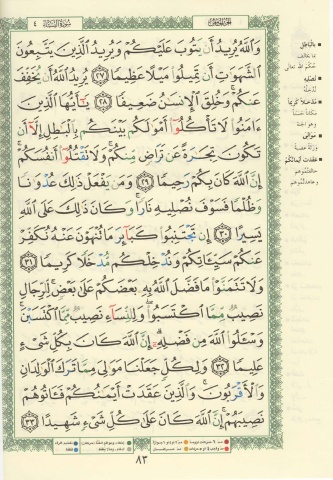 الجزء الخامس
سورة النساء ٤
وَٱللَّهُ يُرِيدُ أَن يَتُوبَ عَلَيْكُمْ وَيُرِيدُ ٱلَّذِينَ يَتَّبِعُونَ
ٱلشَّهَوَٰتِ أَن تَمِيلُوا۟ مَيْلًا عَظِيمًا ٢٧ يُرِيدُ ٱللَّهُ أَن يُخَفِّفَ
عَنكُمْ وَخُلِقَ ٱلْإِنسَٰنُ ضَعِيفًا ٢٨ يَٰٓأَيُّهَا ٱلَّذِينَ
ءَامَنُوا۟ لَا تَأْكُلُوٓا۟ أَمْوَٰلَكُم بَيْنَكُم بِٱلْبَٰطِلِ إِلَّآ أَن
تَكُونَ تِجَٰرَةً عَن تَرَاضٍ مِّنكُمْ وَلَا تَقْتُلُوٓا۟ أَنفُسَكُمْ
إِنَّ ٱللَّهَ كَانَ بِكُمْ رَحِيمًا ٢٩ وَمَن يَفْعَلْ ذَٰلِكَ عُدْوَٰنًا
وَظُلْمًا فَسَوْفَ نُصْلِيهِ نَارًا وَكَانَ ذَٰلِكَ عَلَى ٱللَّهِ
يَسِيرًا ٣٠ إِن تَجْتَنِبُوا۟ كَبَآئِرَ مَا تُنْهَوْنَ عَنْهُ نُكَفِّرْ
عَنكُمْ سَيِّـَٔاتِكُمْ وَنُدْخِلْكُم مُّدْخَلًا كَرِيمًا ٣١
وَلَا تَتَمَنَّوْا۟ مَا فَضَّلَ ٱللَّهُ بِهِۦ بَعْضَكُمْ عَلَىٰ بَعْضٍ لِّلرِّجَالِ
نَصِيبٌ مِّمَّا ٱكْتَسَبُوا۟ وَلِلنِّسَآءِ نَصِيبٌ مِّمَّا ٱكْتَسَبْنَ
وَسْـَٔلُوا۟ ٱللَّهَ مِن فَضْلِهِۦٓ إِنَّ ٱللَّهَ كَانَ بِكُلِّ شَىْءٍ
عَلِيمًا ٣٢ وَلِكُلٍّ جَعَلْنَا مَوَٰلِىَ مِمَّا تَرَكَ ٱلْوَٰلِدَانِ
وَٱلْأَقْرَبُونَ وَٱلَّذِينَ عَقَدَتْ أَيْمَٰنُكُمْ فَـَٔاتُوهُمْ
نَصِيبَهُمْ إِنَّ ٱللَّهَ كَانَ عَلَىٰ كُلِّ شَىْءٍ شَهِيدًا ٣٣
٨٣
بالباطل
بما يخالف
حكم الله تعالى
نصليه
ندخله
مدخلا كريما
مكانا حسنا
وهو الجنة
موالي
ورثة عصبة
عقدت أيمانكم
حالفتموهم
وعاهدتموهم